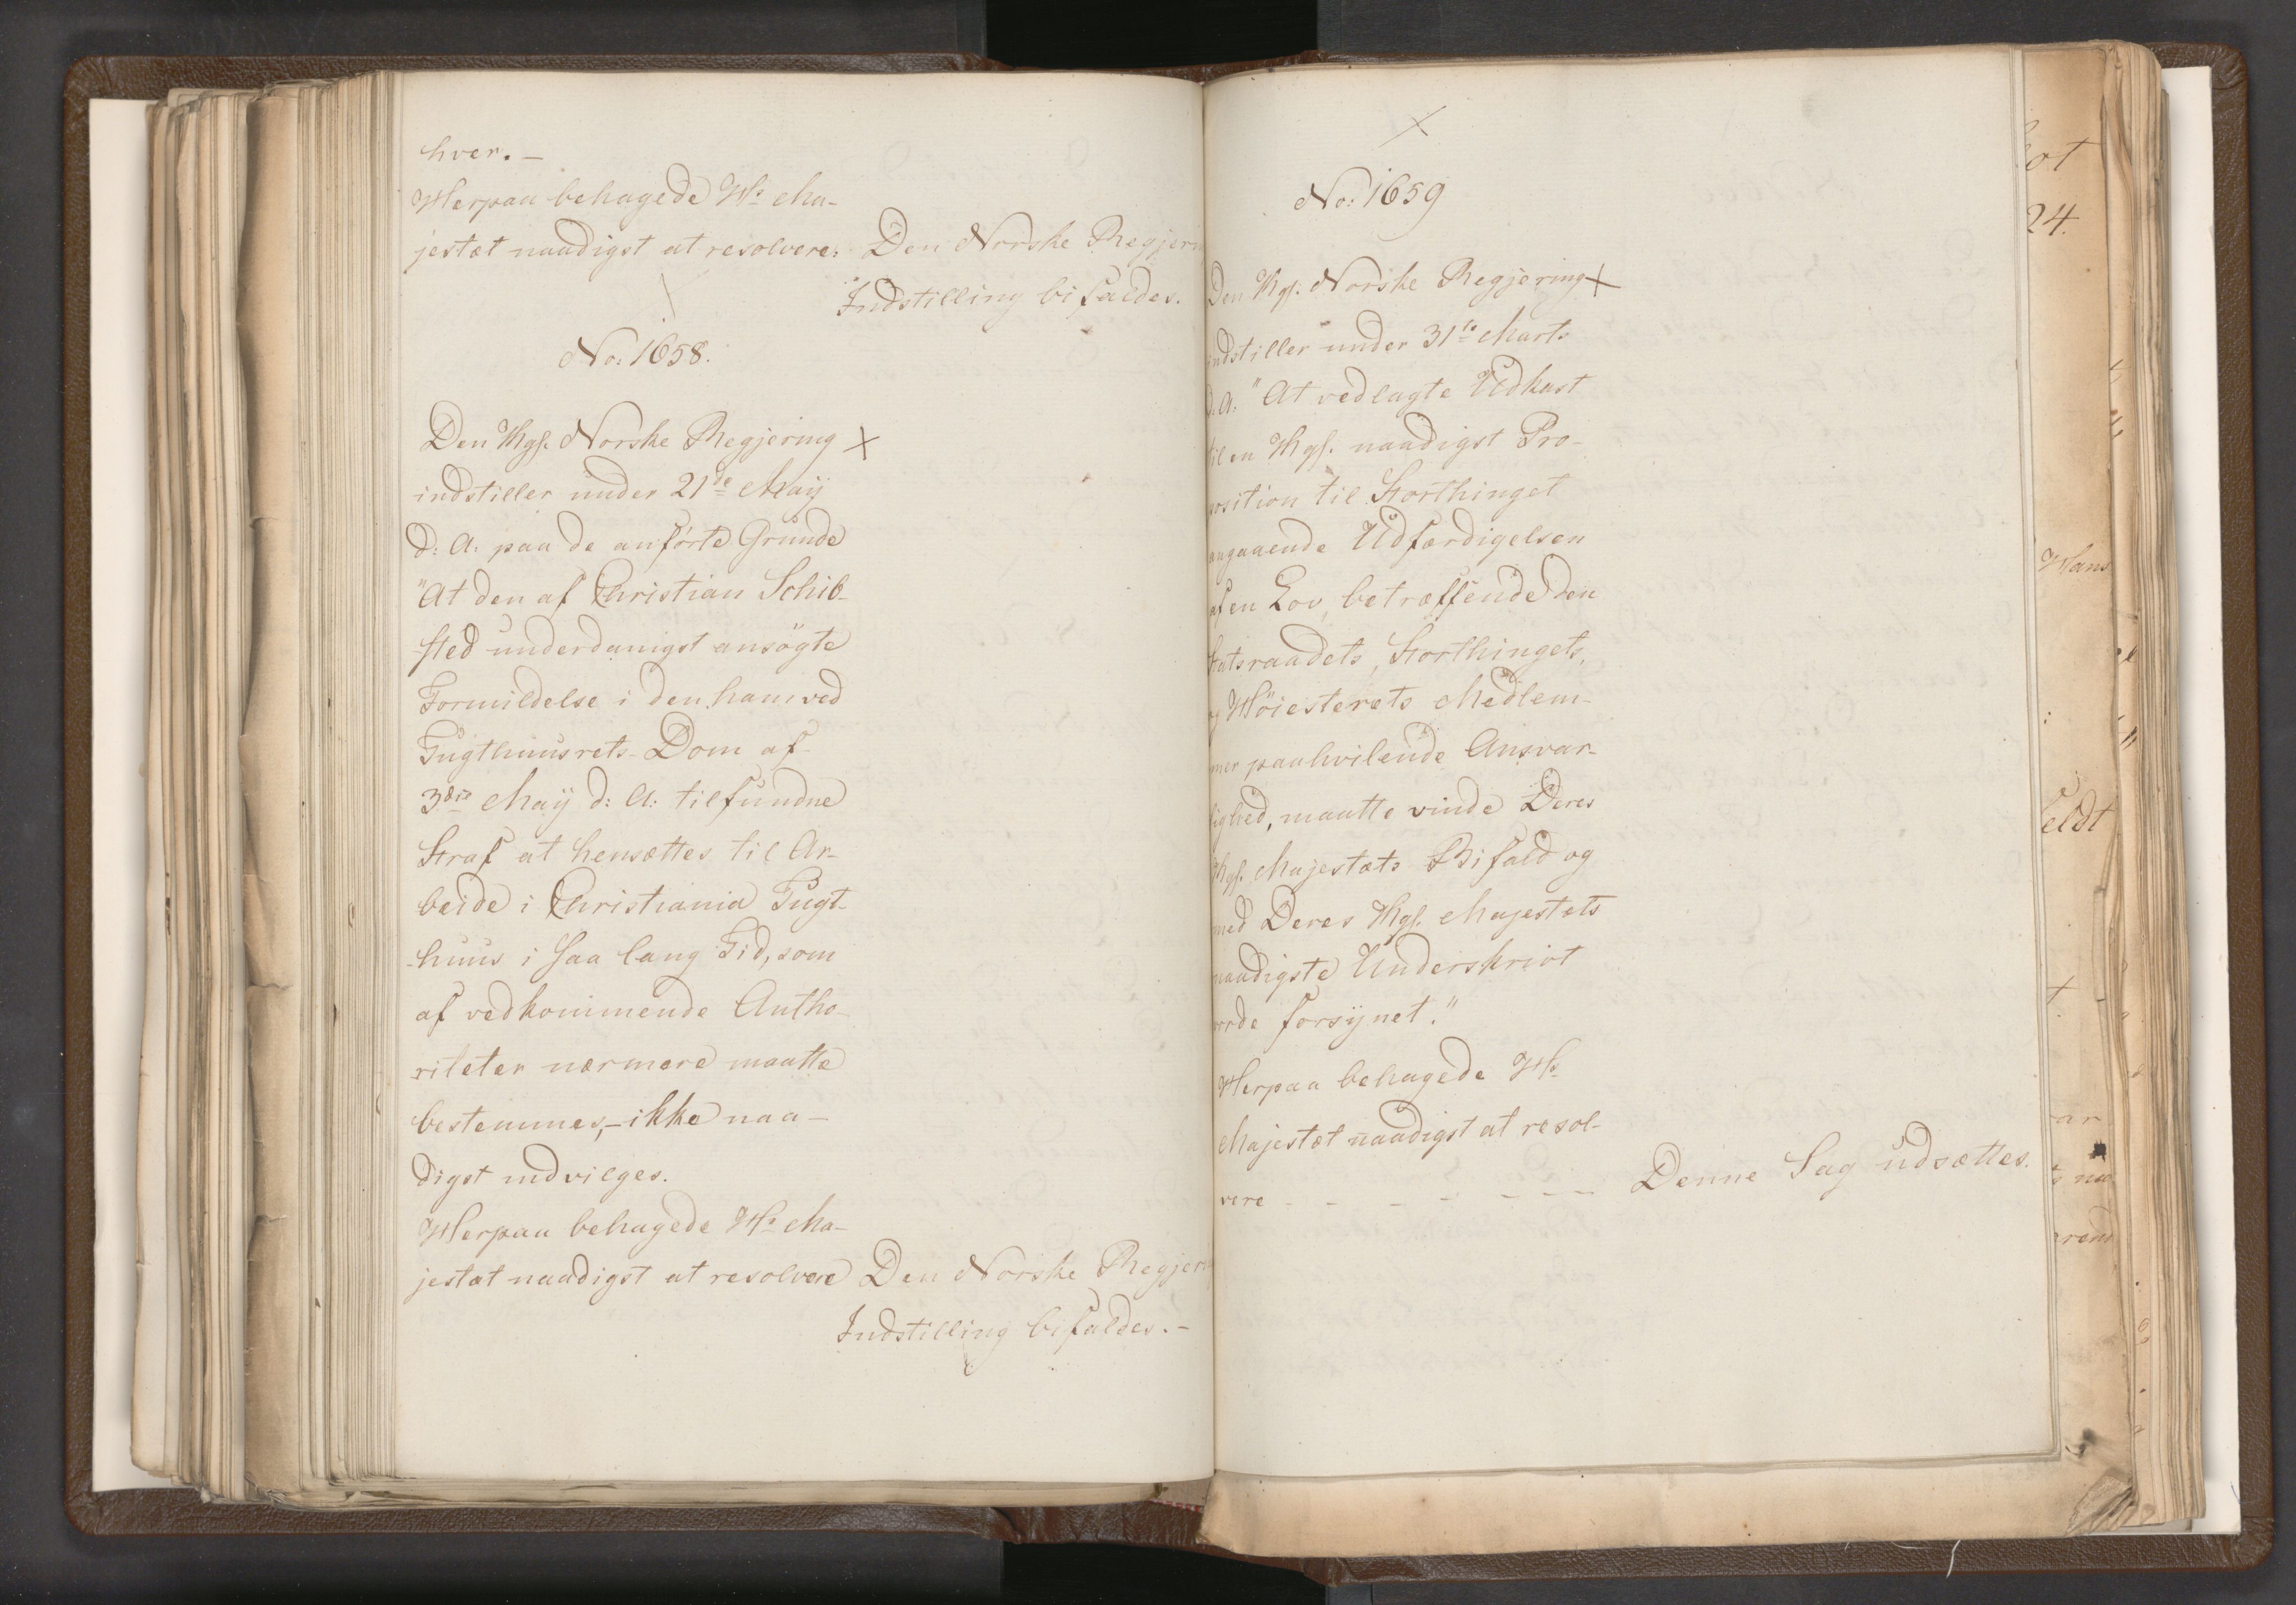 hver. –
Herpaa behagede Hs Ma-
jestæt naadigst at resolvere: Den Norske Regjerin
Indstilling bifaldes.
No: 1658.
Den Kgl. Norske Regjering X
indstiller under 21de Maÿ
d: A: paa de anførte Grunde
"At den af Christian Schib-
sted underdanigst ansögte
Formildelse i den ham ved
Tugthuusrets-Dom af
3die Maÿ d: A: tilfundne
Straf at hensættes til Ar-
beide i Christiania Tugt-
huus i saa lang Tid, som
af vedkommende Autho-
riteter nærmere maatte
bestemmes, – ikke naa-
digst indvilges.
Herpaa behagede Hs Ma-
jestæt naadigst at resolvere Den Norske Regjeri
Indstilling bifaldes. –
X
No: 1659
Den Kgl. Norske Regjering X
indstiller under 31te Marts
d. A. "At vedlagte Udkast
til en Kgl. naadigst Pro-
position til Storthinget
angaaende Udfærdigelsen
af en Lov, betræffende den
Statsraadets, Storthingets,
og Höiesterets Medlem-
mer paahvilende Ansvar-
lighed, maatte vinde Deres
Kgl. Majestæts Bifald og
med Deres Kgl. Majestæts
naadigste Underskrivt
vorde forsÿnet."
Herpaa behagede Hs
Majestæt naadigst at resol-
vere - - - - - - - Denne Sag udsættes.
ot
24.
Hans
eldt